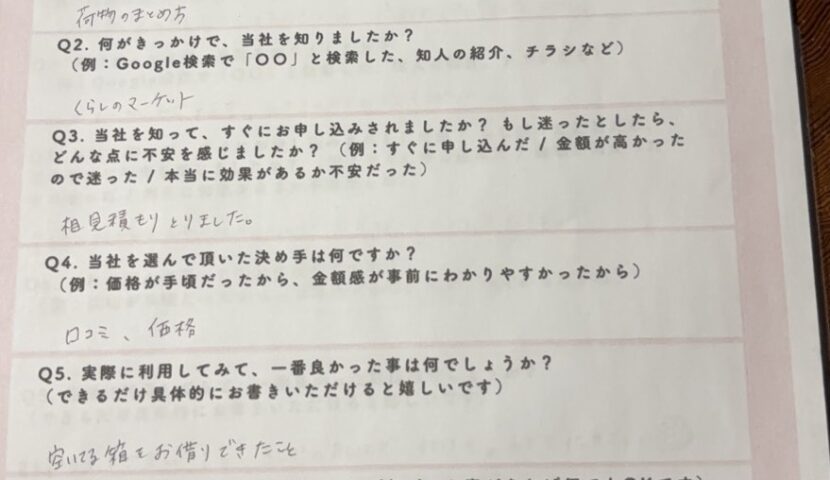 荷物のまとめ方
Q2. 何がきっかけで、当社を知りましたか？
（例：Google検索で「〇〇」と検索した、知人の紹介、チラシなど）
くらしのマーケット
Q3. 当社を知って、すぐにお申し込みされましたか？ もし迷ったとしたら、
どんな点に不安を感じましたか？（例：すぐに申し込んだ / 金額が高かった
ので迷った / 本当に効果があるか不安だった）
相見積もりとりました。
Q4. 当社を選んで頂いた決め手は何ですか？
（例：価格が手頃だったから、金額感が事前にわかりやすかったから）
口コミ、価格
Q5. 実際に利用してみて、一番良かった事は何でしょうか？
（できるだけ具体的にお書きいただけると嬉しいです）
空いてる箱をお借りできたこと